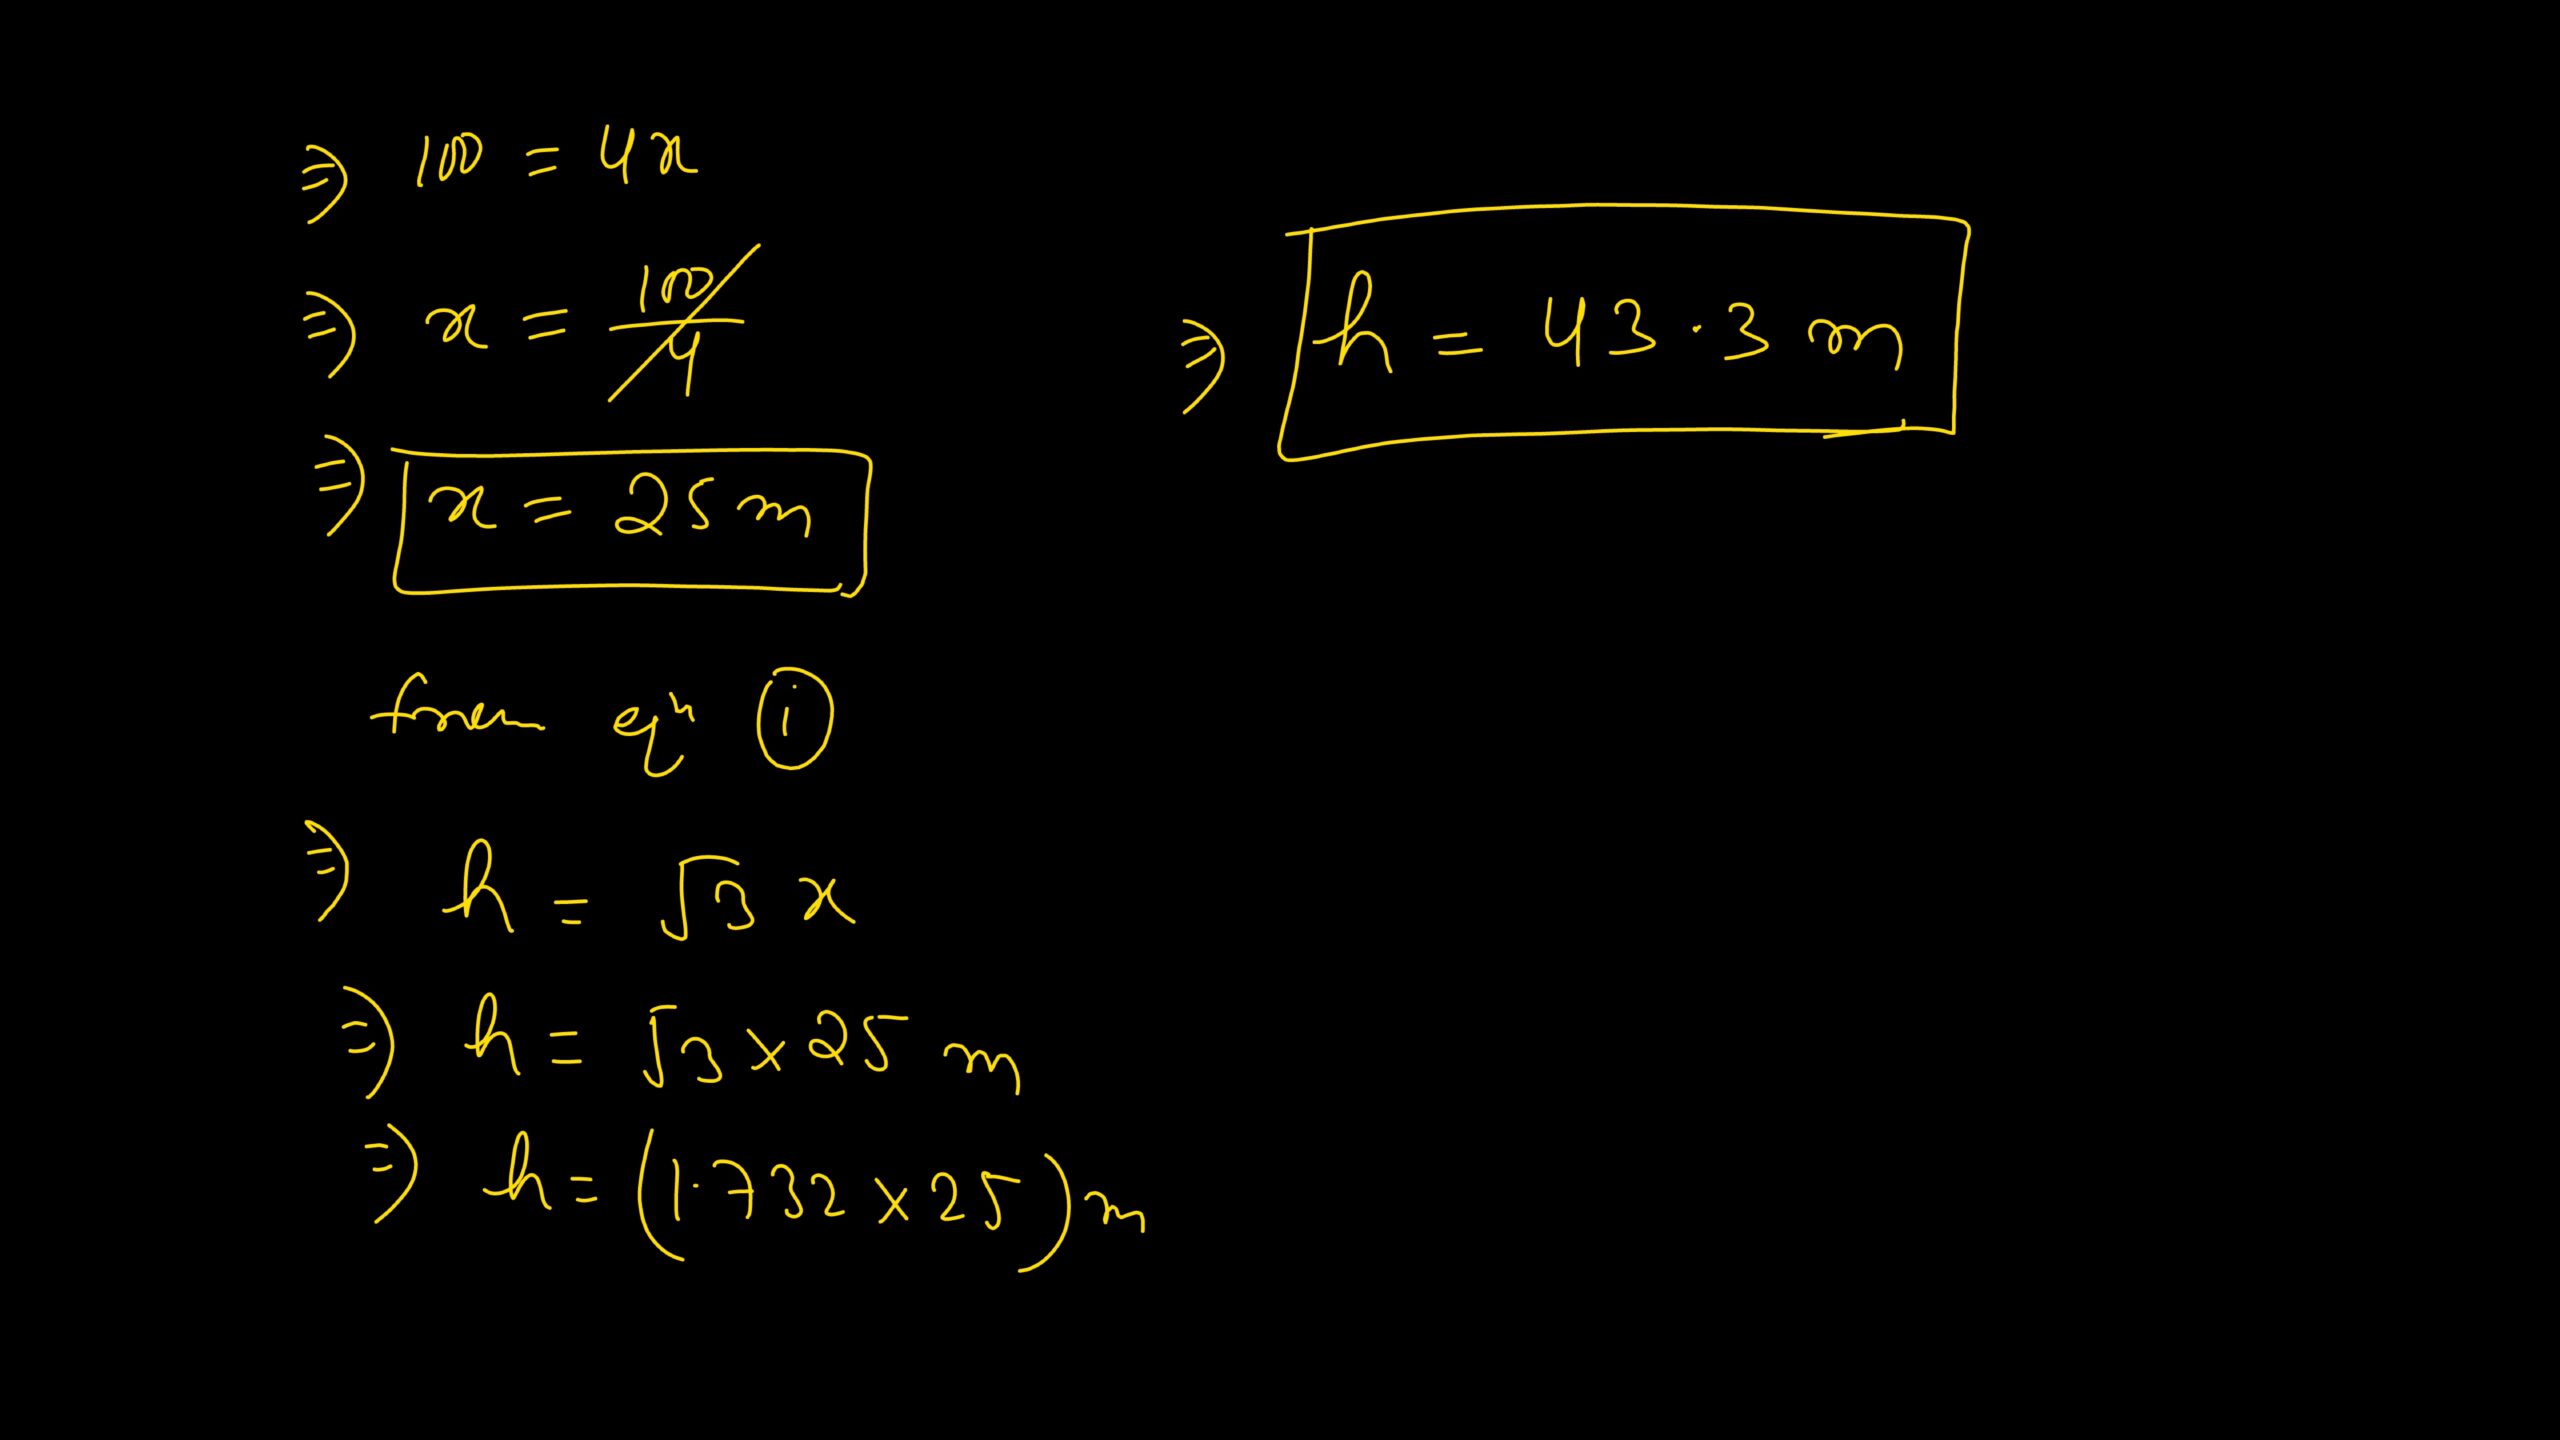 ⇒ 100 = 4x
⇒ x = 100/4
⇒ x = 25 m
from eqⁿ (i)
⇒ h = √3 x
⇒ h = √3 × 25 m
⇒ h = (1.732 × 25) m
⇒ h = 43.3 m